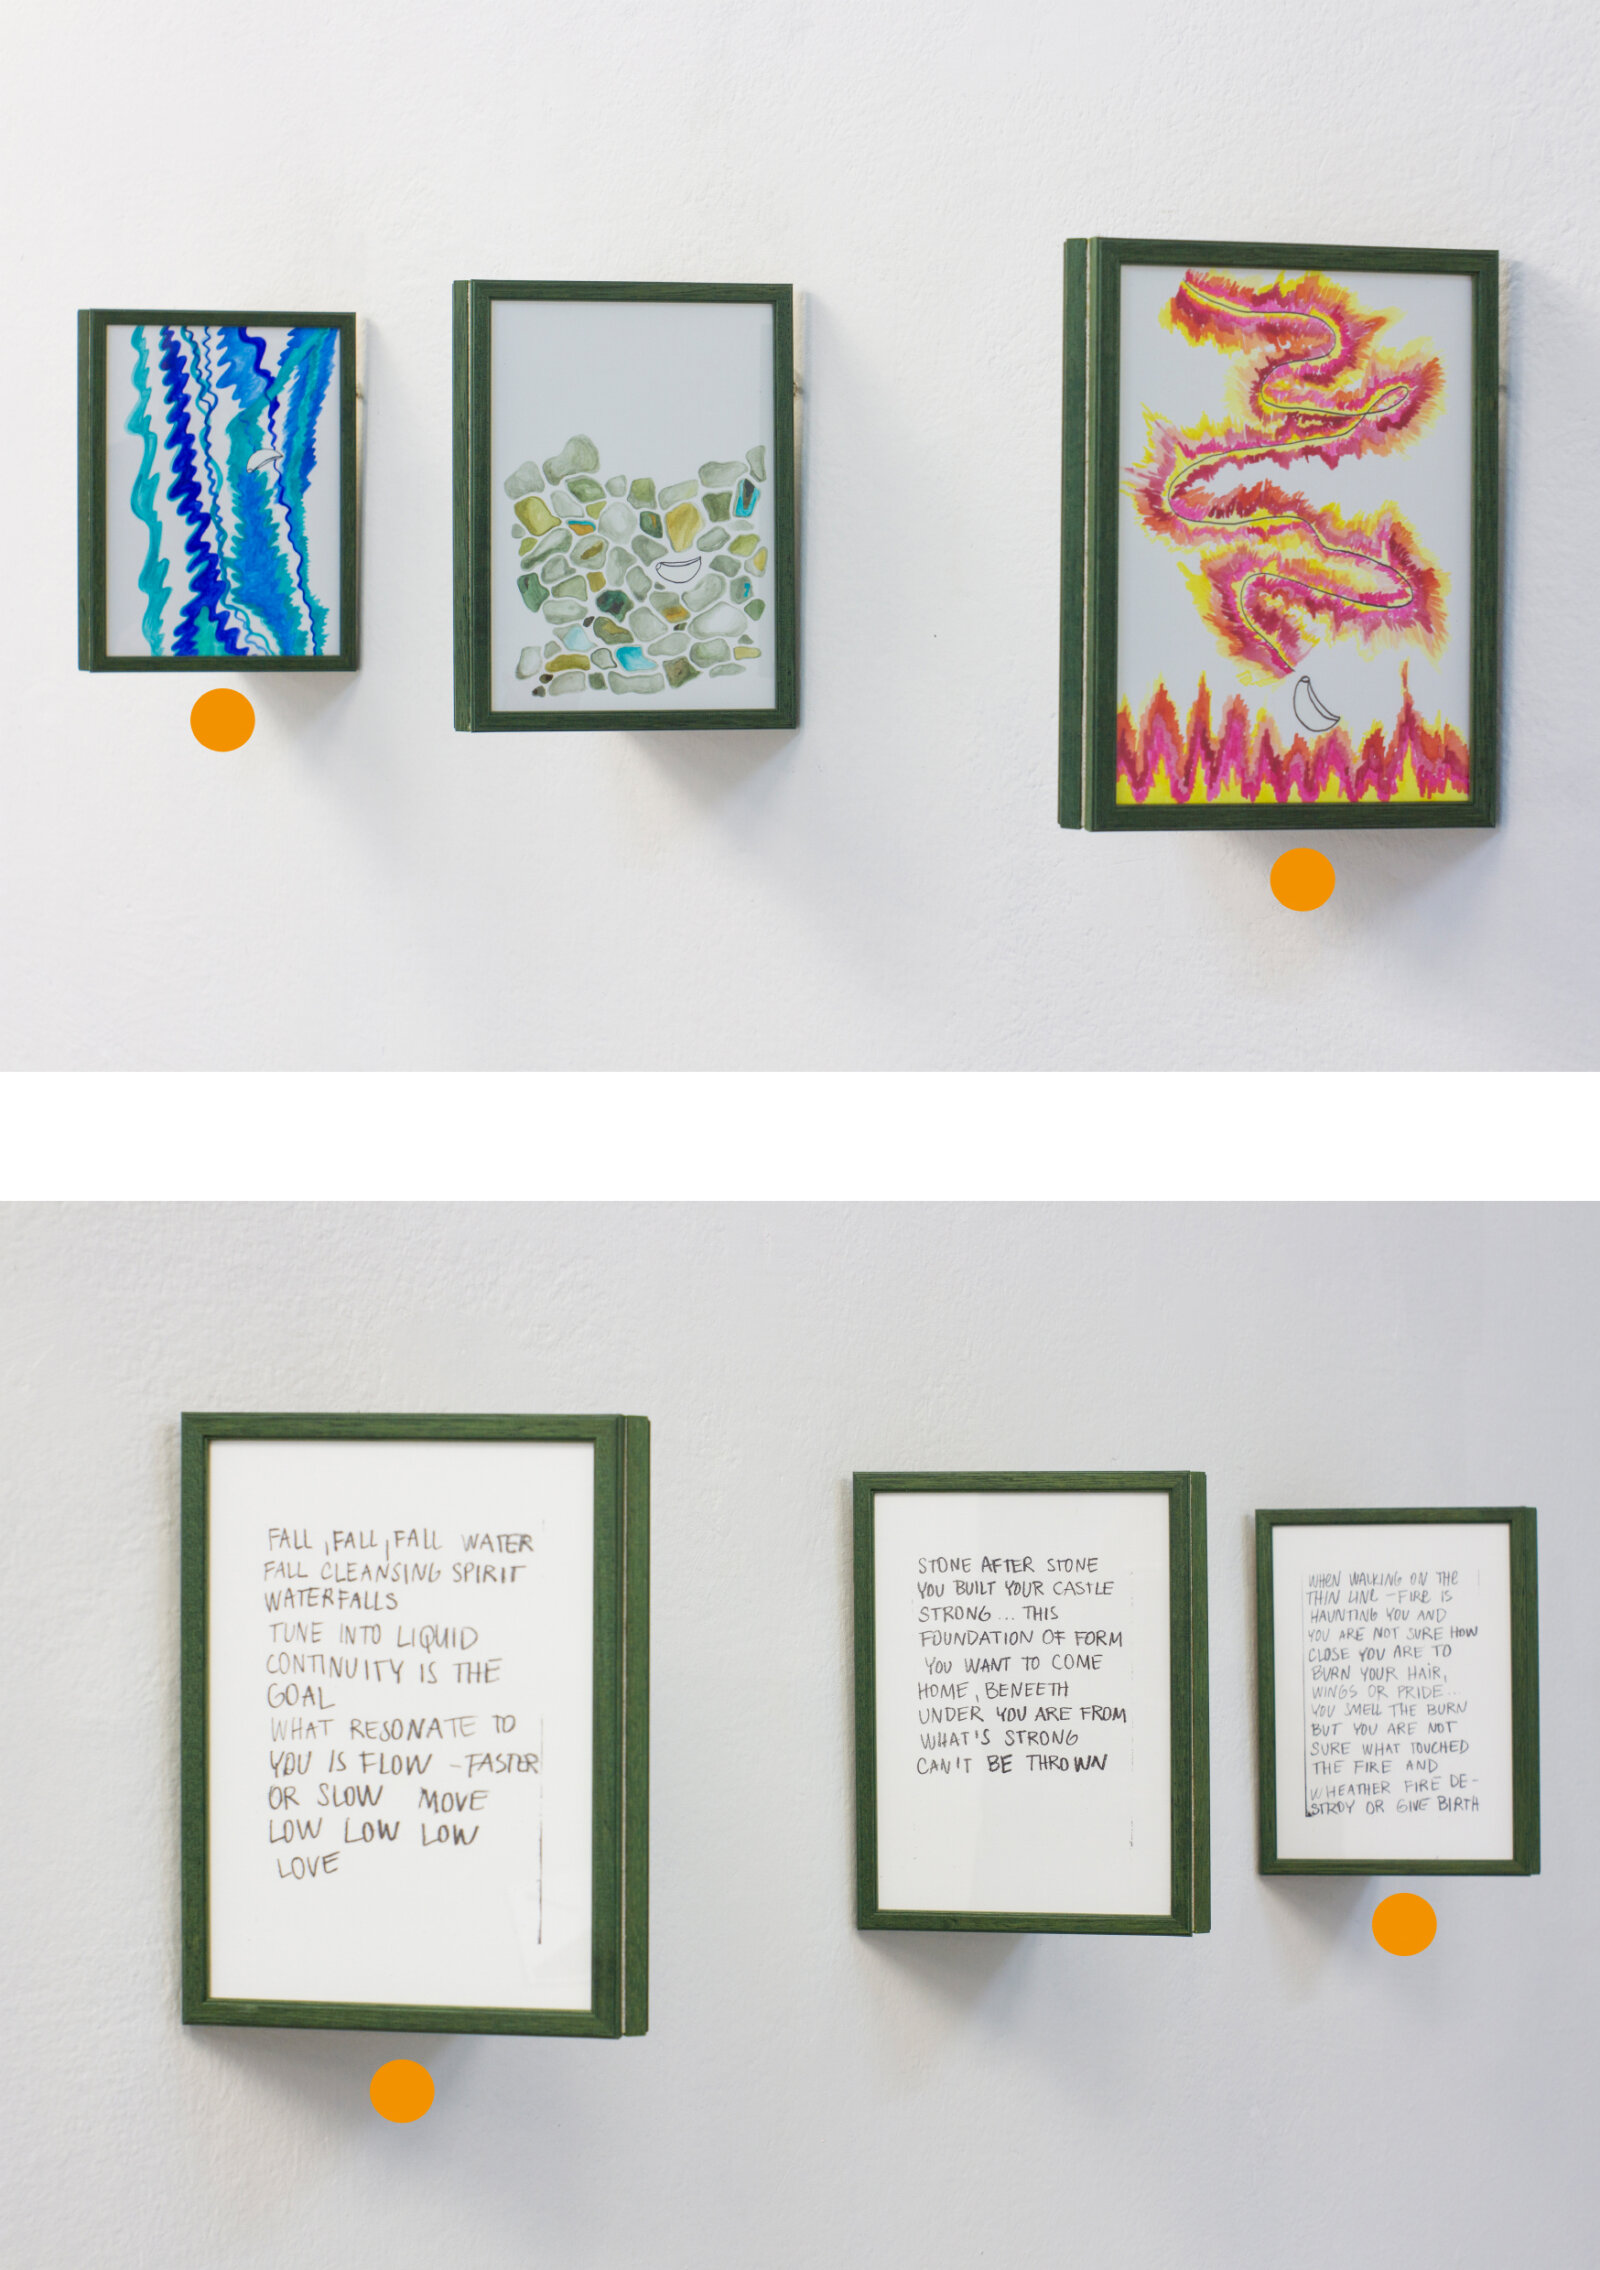 FALL, FALL, FALL WATER
FALL CLEANSING SPIRIT
WATERFALLS
TUNE INTO LIQUID
CONTINUITY IS THE
GOAL
WHAT RESONATE TO
YOU IS FLOW – FASTER
OR SLOW MOVE
LOW LOW LOW
LOVE
STONE AFTER STONE
YOU BUILT YOUR CASTLE
STRONG... THIS
FOUNDATION OF FORM
YOU WANT TO COME
HOME, BENEETH
UNDER YOU ARE FROM
WHAT'S STRONG
CAN'T BE THROWN
WHEN WALKING ON THE
THIN LINE – FIRE IS
HAUNTING YOU AND
YOU ARE NOT SURE HOW
CLOSE YOU ARE TO
BURN YOUR HAIR,
WINGS OR PRIDE...
YOU SMELL THE BURN
BUT YOU ARE NOT
SURE WHAT TOUCHED
THE FIRE AND
WHEATHER FIRE DE-
STROY OR GIVE BIRTH